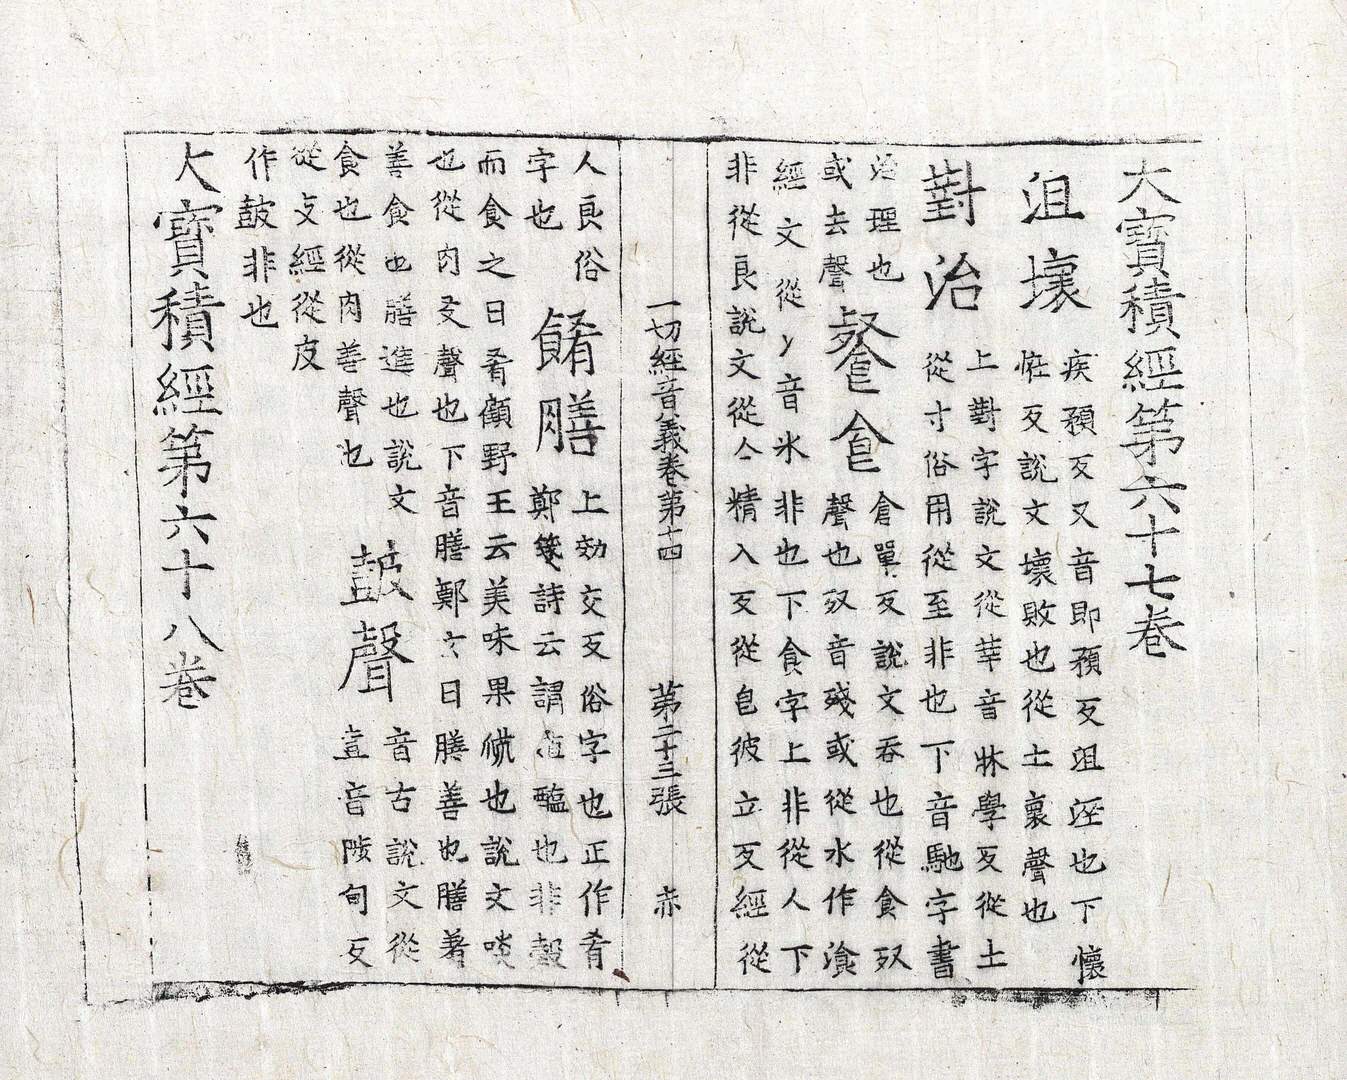 大寶積經第六十七卷
沮壞
疾預反又音即預反沮洷也下懷
恠反說文壞敗也從土褱聲也
對治
上對字說文從丵音牀學反從土
從寸俗用從至非也下音馳字書
治理也
或去聲
餐食
倉單反說文吞也從食𣦼
聲也𣦼音殘或從水作湌
經文從冫音氷非也下食字上非從人下
非從良說文從亼精入反從皀彼立反經從
一切經音義卷第十四 第二十三張 赤
人良俗
字也
餚膳
上効交反俗字也正作肴
鄭箋詩云謂菹醢也非穀
而食之曰肴顧野王云美味果𦵔也說文啖
也從肉爻聲也下音膳鄭文曰膳善也膳著
善食也膳進也說文
食也從肉善聲也
鼓聲
音古說文從
壴音陟句反
從攴經從皮
作皷非也
大寶積經第六十八卷